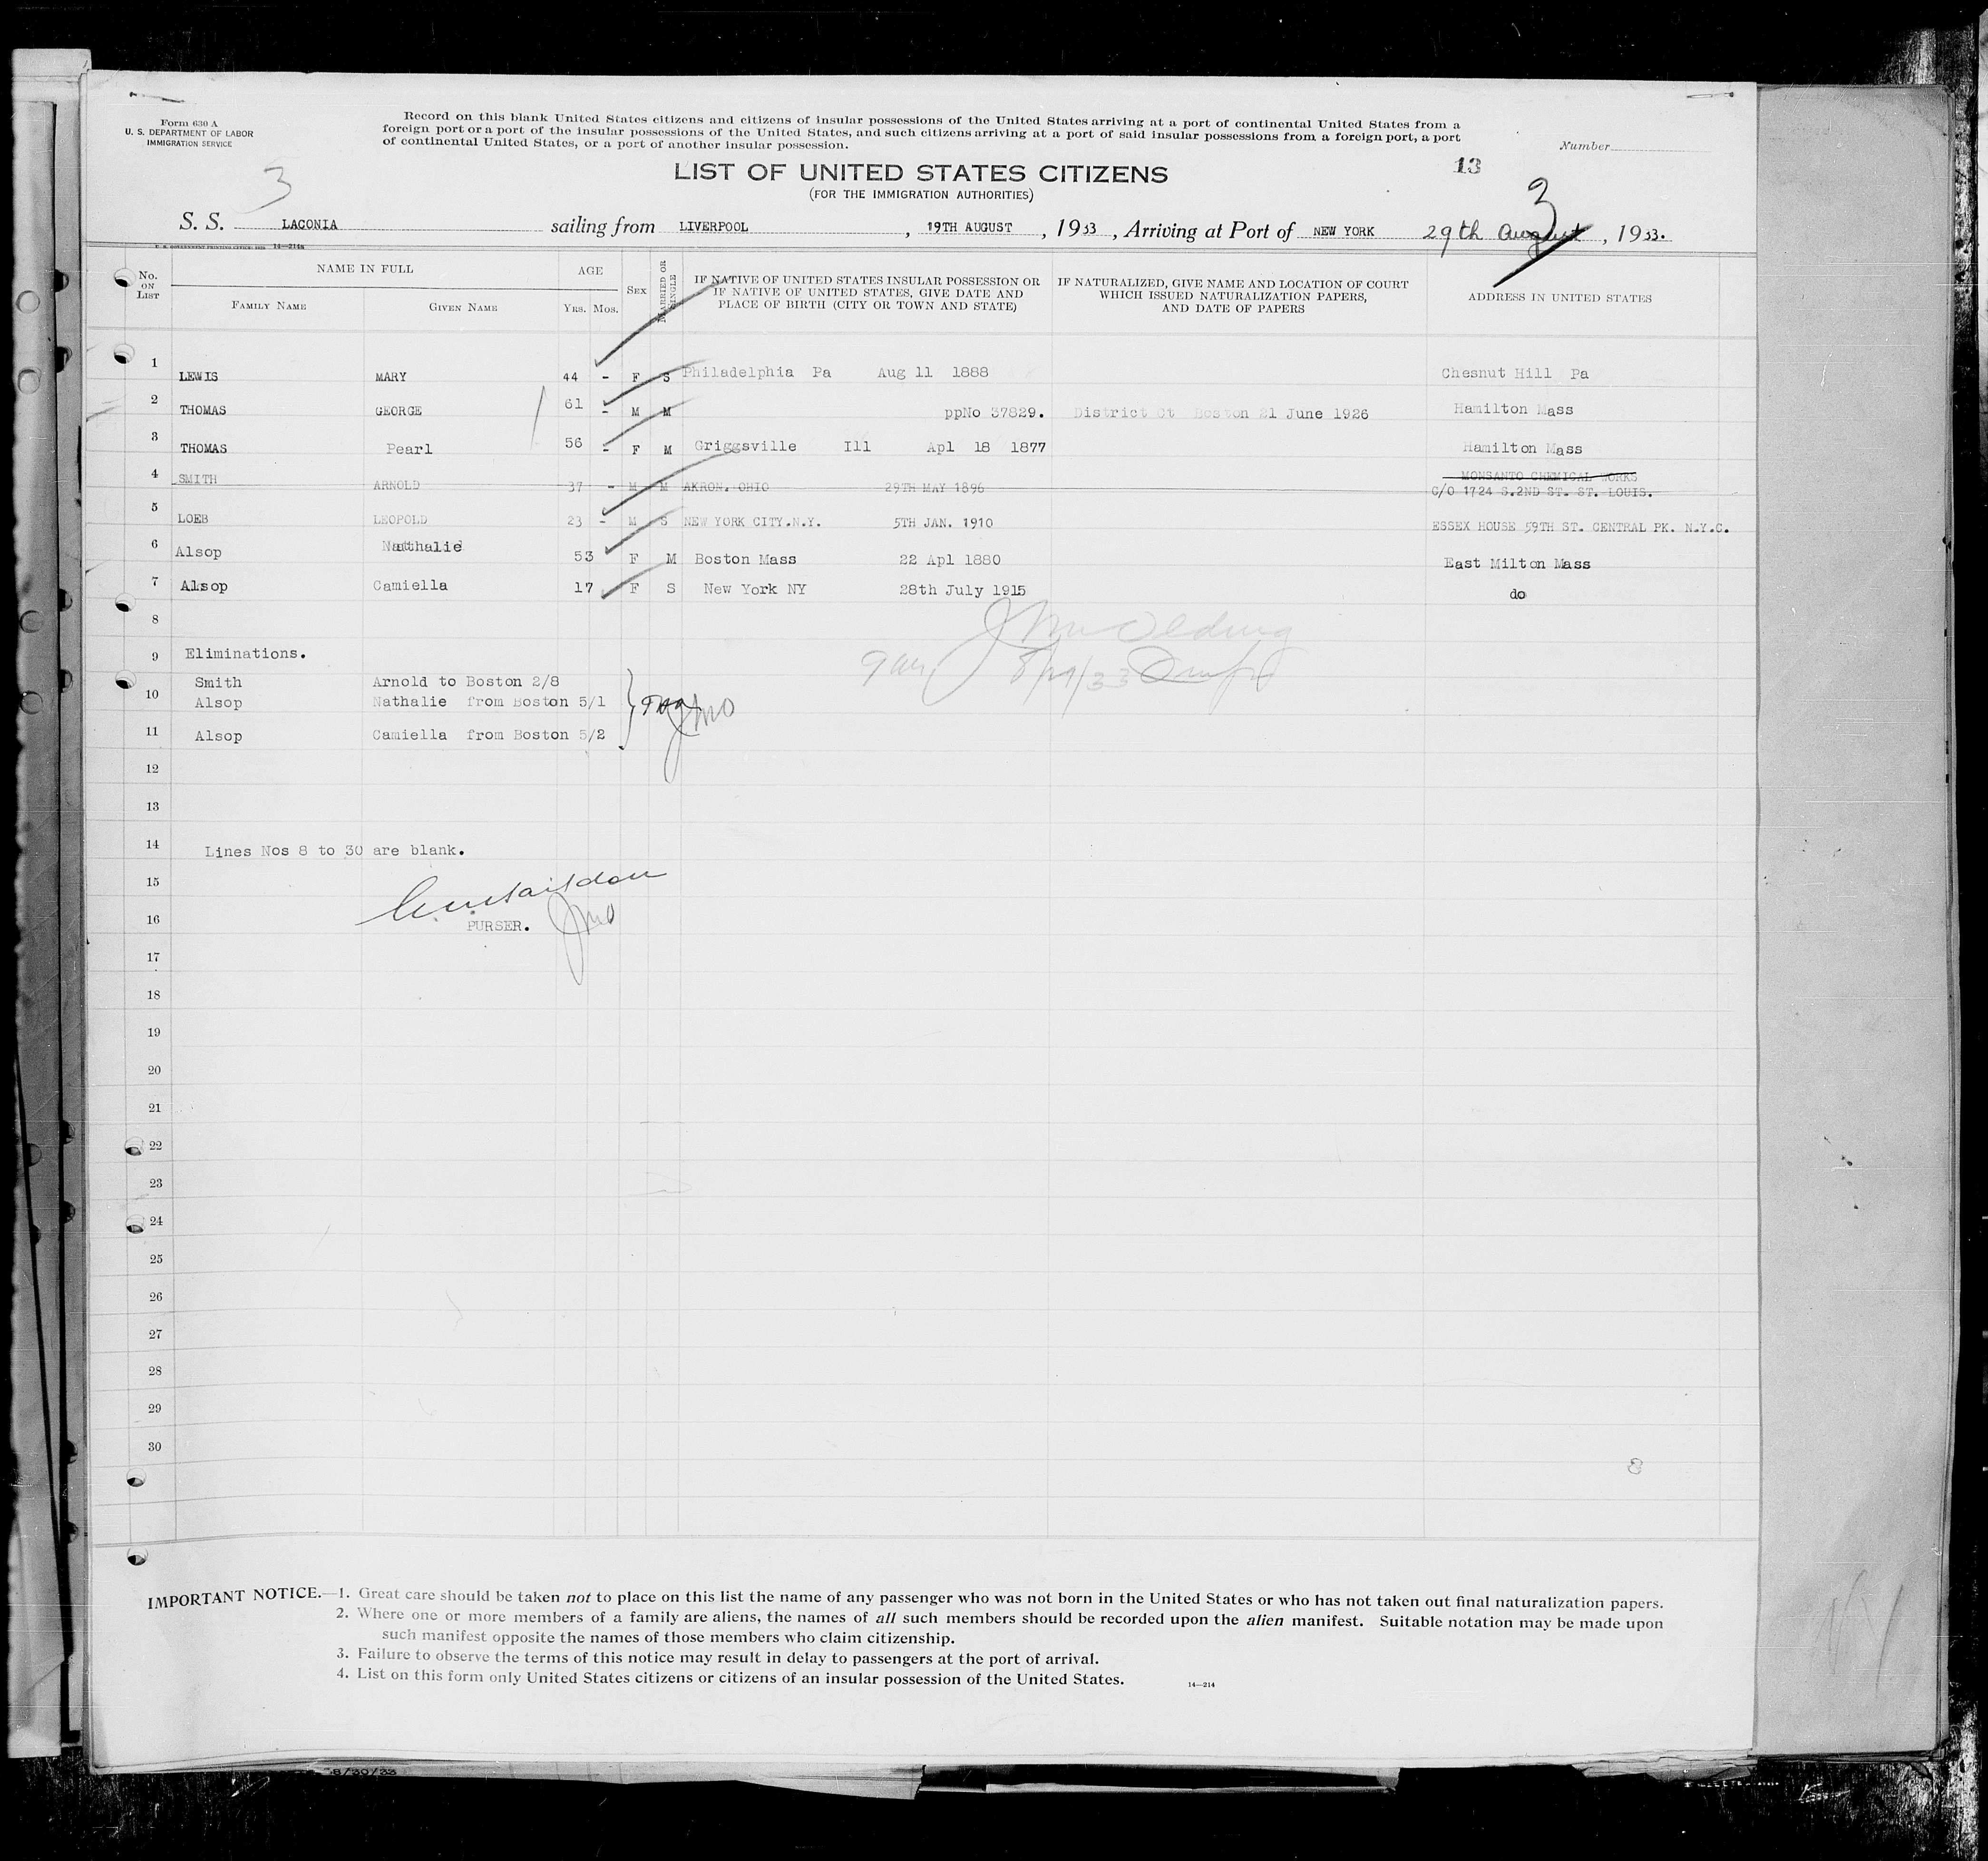 Form 630 A
U. S. DEPARTMENT OF LABOR
IMMIGRATION SERVICE
Record on this blank United States citizens and citizens of insular possessions of the United States arriving at a port of continental United States from a
foreign port or a port of the insular possessions of the United States, and such citizens arriving at a port of said insular possessions from a foreign port, a port
of continental United States, or a port of another insular possession.
Number
LIST OF UNITED STATES CITIZENS
13
(FOR THE IMMIGRATION AUTHORITIES)
3
3
S. S. LACONIA sailing from LIVERPOOL , 19TH AUGUST , 1933 , Arriving at Port of NEW YORK 29th August , 1933.
U. S. GOVERNMENT PRINTING OFFICE: 14—214a
No. ON LIST NAME IN FULL FAMILY NAME GIVEN NAME AGE YRS. MOS. SEX MARRIED OR SINGLE IF NATIVE OF UNITED STATES INSULAR POSSESSION OR IF NATIVE OF UNITED STATES, GIVE DATE AND PLACE OF BIRTH (CITY OR TOWN AND STATE) IF NATURALIZED, GIVE NAME AND LOCATION OF COURT WHICH ISSUED NATURALIZATION PAPERS, AND DATE OF PAPERS ADDRESS IN UNITED STATES
1 LEWIS MARY 44 - F S Philadelphia Pa Aug 11 1888 Chesnut Hill Pa
2 THOMAS GEORGE 61 - M M ppNo 37829. District Ct Boston 21 June 1926 Hamilton Mass
3 THOMAS Pearl 56 - F M Griggsville Ill Apl 18 1877 Hamilton Mass
4 SMITH ARNOLD 37 - M M AKRON. OHIO 29TH MAY 1896 MONSANTO CHEMICAL WORKS
C/O 1724 S.2ND ST. ST. LOUIS.
5 LOEB LEOPOLD 23 - M S NEW YORK CITY.N.Y. 5TH JAN. 1910 ESSEX HOUSE 59TH ST. CENTRAL PK. N.Y.C.
6 Alsop Nathalie 53 F M Boston Mass 22 Apl 1880 East Milton Mass
7 Alsop Camiella 17 F S New York NY 28th July 1915 do
8
9 Eliminations.
Smith Arnold to Boston 2/8
10 Alsop Nathalie from Boston 5/1
11 Alsop Camiella from Boston 5/2
12
13
14 Lines Nos 8 to 30 are blank.
15
16 PURSER.
17
18
19
20
21
22
23
24
25
26
27
28
29
30
8
IMPORTANT NOTICE.—1. Great care should be taken not to place on this list the name of any passenger who was not born in the United States or who has not taken out final naturalization papers.
2. Where one or more members of a family are aliens, the names of all such members should be recorded upon the alien manifest. Suitable notation may be made upon
such manifest opposite the names of those members who claim citizenship.
3. Failure to observe the terms of this notice may result in delay to passengers at the port of arrival.
4. List on this form only United States citizens or citizens of an insular possession of the United States.
14—214
8/30/33